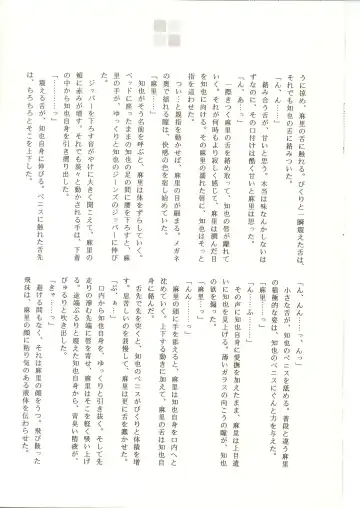 うに掠め、麻里の舌に触れる。びくりと一瞬震えた舌が、
それでも知也の舌に絡みついた。
「ん、んん……」
絡み合う舌が、甘いと思う。本当は味なんかしないは
ずなのに、その口付けは酷く甘いと麻里は思った。
「ん、あ…っ」
一際きつく麻里の舌を絡め取って、知也の唇が離れて
いく。それが何時もより寂しく感じて、麻里は潤んだ目
を知也に向ける。その麻里の濡れた唇に、知也はそっと
指を這わせた。
つい…と親指を動かせば、麻里の目が細まる。メガネ
の奥で揺れる瞳は、快感の色を宿し始めていた。
「麻里……」
知也がそう名前を呼ぶと、麻里は体をずらしていく。
ベッドに座ったままの知也の足の間に腰を下ろすと、麻
里の手が、ゆっくりと知也のジーンズのジッパーに伸び
た。
ジッパーを下ろす音がやけに大きく聞こえて、麻里の
頬に赤みが増す。それでも怖々と動かされる手は、下着
の中から知也自身を引き摺り出した。
「………っ」
震える舌が、知也自身に伸びる。ペニスに触れた舌先
は、ちろちろとそこを上下した。
「ん、んん……、っ」
小さな舌が、知也のペニスを舐める。普段と違う麻里
の積極的な姿は、知也のペニスにぐんと力を与えた。
「麻里……っ」
「ん…ふ……」
その声に知也自身に愛撫を加えたまま、麻里は上目遣
いに知也を見上げる。薄いガラスの向こうの瞳が、知也
の欲を煽った。
「麻里…っ」
「んん…っ」
麻里の頭に手を添えると、麻里は知也自身を口内へと
沈めていく。上下する動きに加えて、麻里の舌は知也自
身に絡んだ。
舌先で先を突くと、知也のペニスがびくりと体積を増
し、息苦しいのを我慢して、麻里は更に舌を蠢かせた。
「ぷ、ふ……」
口内から知也自身を、ゆっくりと引き抜く。そして先
走りの滲む先端に唇を寄せ、麻里はそこを軽く吸い上げ
る。途端ぶるりと震えた知也自身から、青臭い精液が、
びゅるりと吹き出した。
「きゅ……っ」
避ける間もなく、それは麻里の顔をうつ。飛び散った
飛沫は、麻里の顔に粘り気のある液体を伝わらせた。